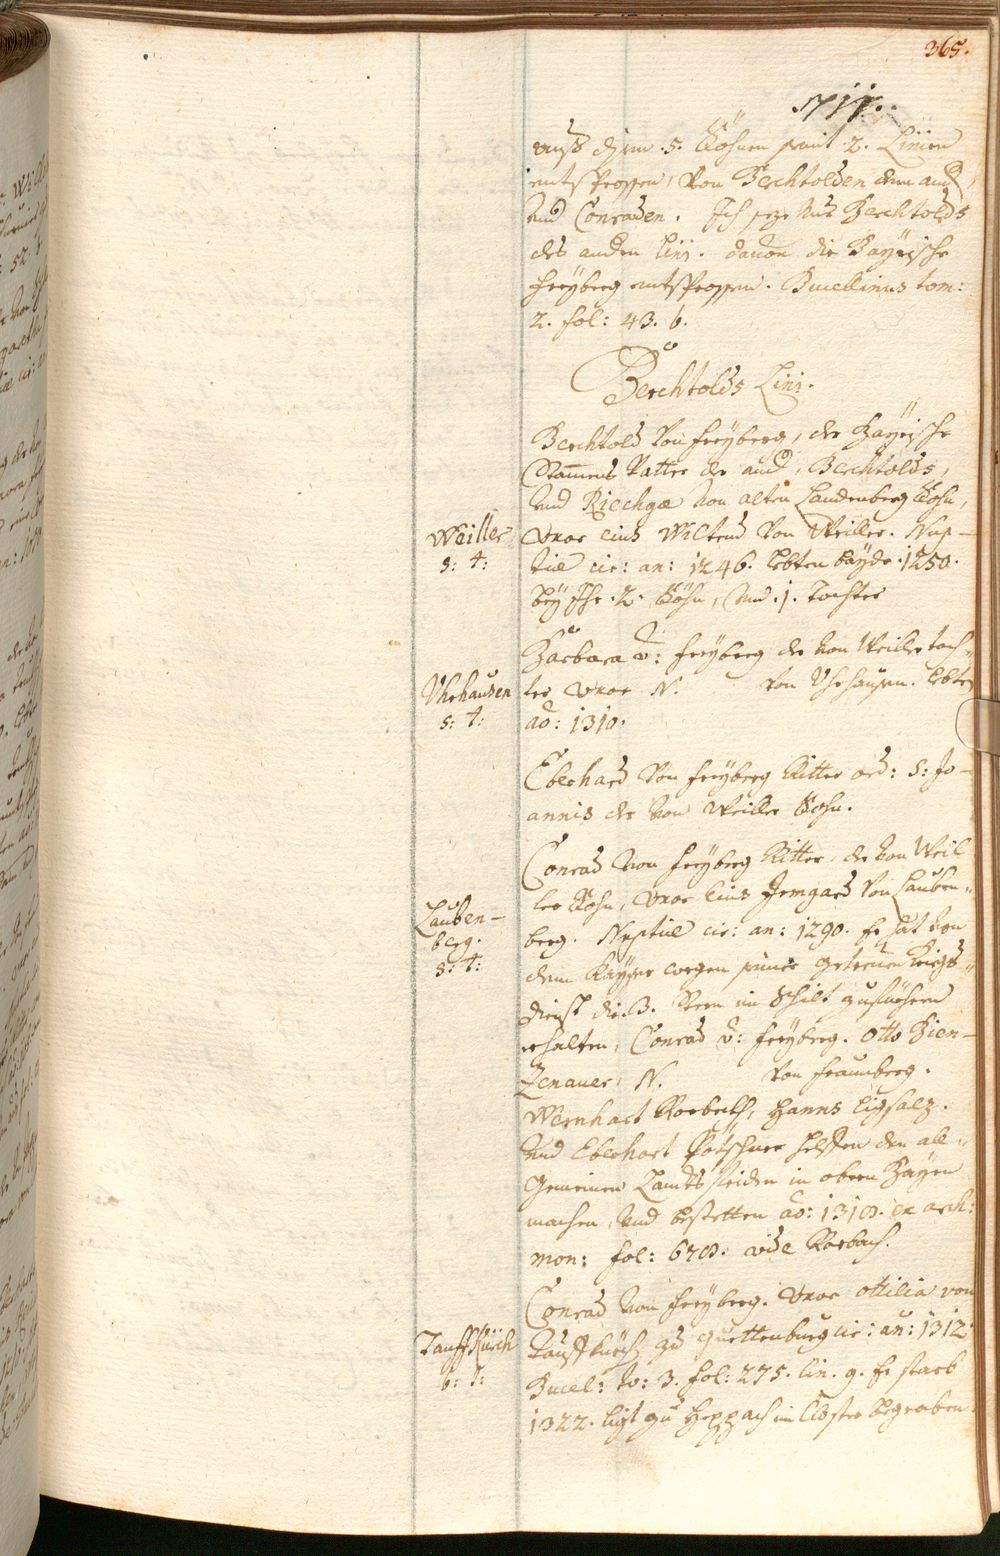 365.
1711.
auß disem .5. Söhnen seint 2. Linien
entsprossen, Von Berchtolden dem and.
und Conraden. Ich seze nur Berchtolds
des andern Lini. dauon die Bayrische
Freyberg entsprossen. Bucellinus tom:
2. fol: 43. b.
Berchtolds Lini.
Berchtold Von Freyberg, der Bayrische
Stammens Vatter der and. Berchtolds,
und Riechgæ von alten Landenberg Sohn,
Weiller
s: t:
Uxor eius Wiltrud Von Weiller. Nup-
tiæ cir: an: 1246. lebten bayde .1250.
bey Ihr .2. Söhn, und .1. Tochter
Barbara v: Freyberg der von Weiller toch-
Uhrhausen
s: t:
ter Uxor N. von Uhrhausen. lebten
ao: 1310.
Eberhard Von Freyberg Ritter ord: S: Jo-
annis der von Weiller Sohn.
Conrad von Freyberg Ritter, der von Weil-
Lauben-
berg.
s: t:
ler Sohn, Uxor eius Irmgard Von Lauben-
berg. Nuptiæ cir: an: 1290. Er hat von
dem Kayser wegen seiner getreuen Kriegs-
dienst die .3. Stern im Schilt zuführen
erhalten, Conrad v: Freyberg. Otto Bien-
zenauer, N. von Fraunberg.
Wernhart Rorbekh, Hanns Ligsalz.
und Eberhart Potschner helffen den al-
gemeinen Landtsfriden in obern Bayrn
machen, und bestetten ao: 1310. ex arch:
mon: fol: 670. vide Rorbach.
Conrad von Freyberg. Uxor Ottilia von
Tauffkürch
b: t:
Tauffkürch zu Guettenburg cir: an: 1312
Bucel: to: 3. fol: 275. lin. 9. Er starb
1322. ligt zu Heppach im Closter begraben.